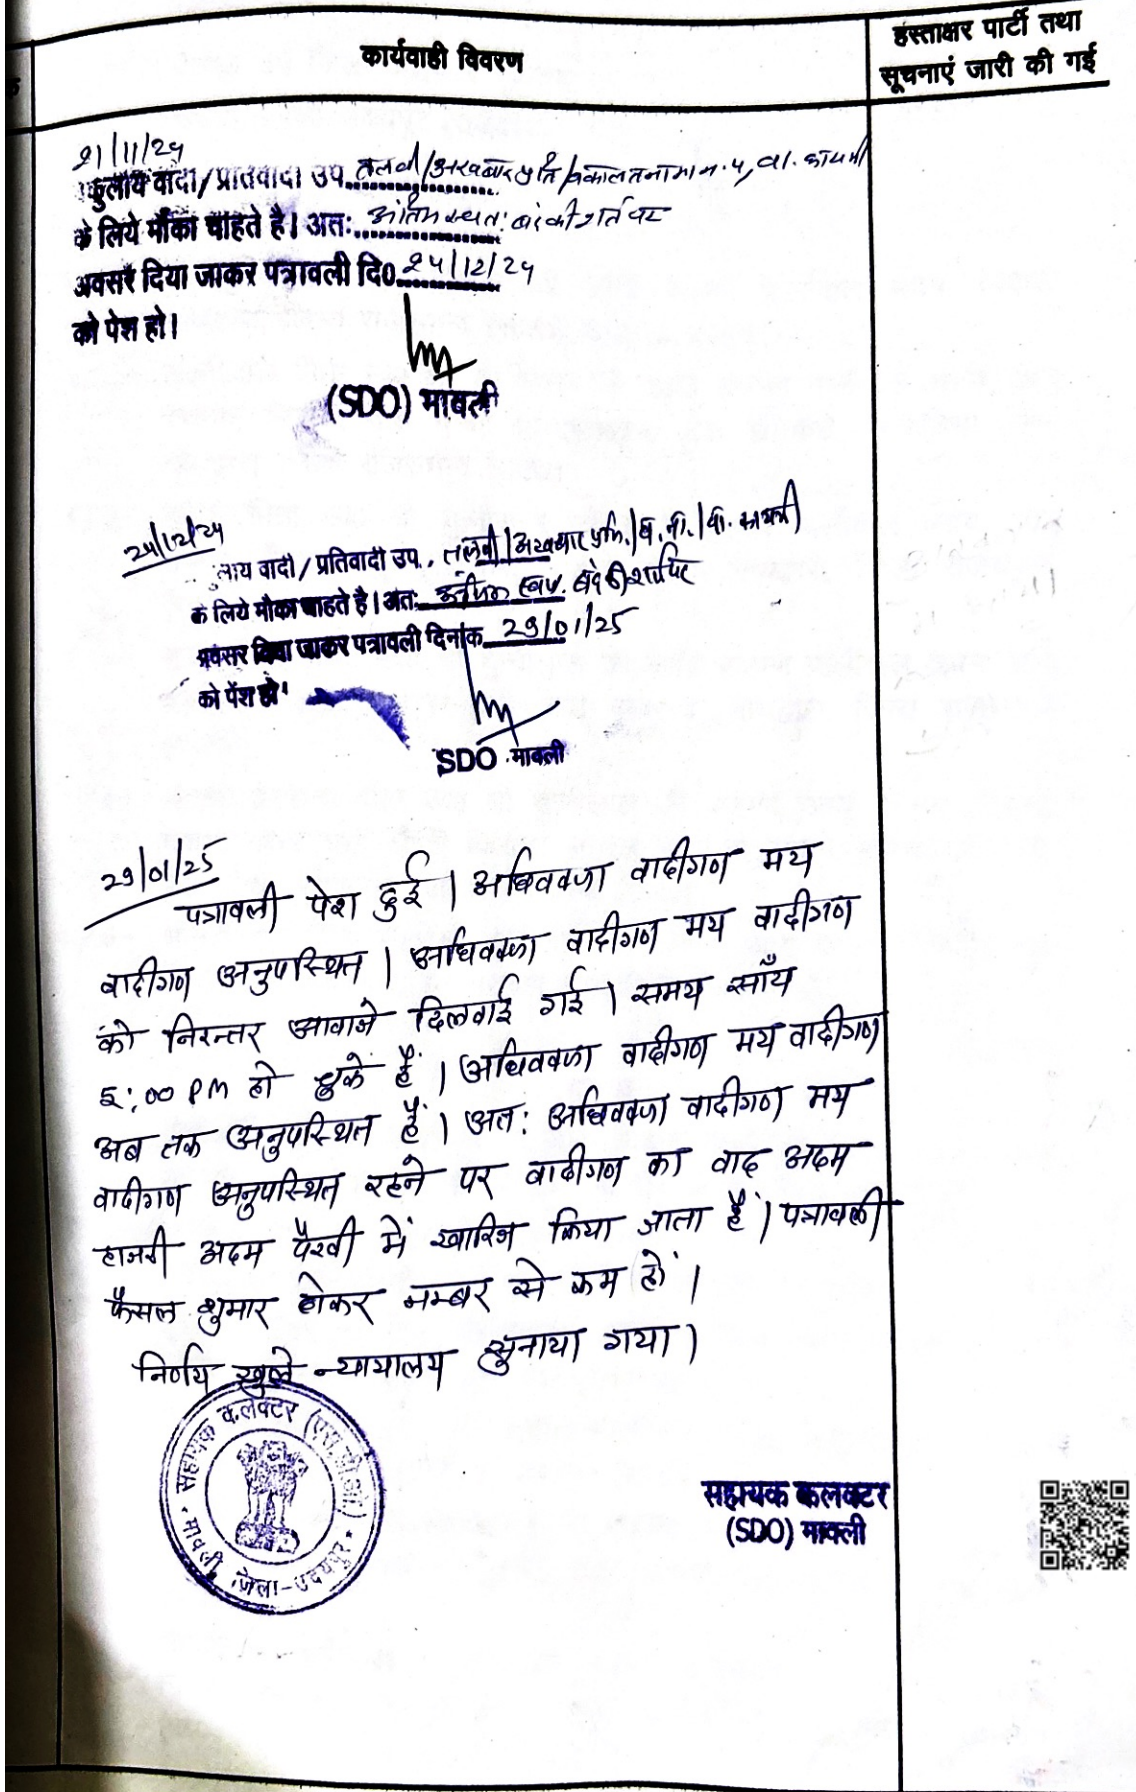 कार्यवाही विवरण
हस्ताक्षर पार्टी तथा
सूचनाएं जारी की गई
21/11/24
वादी/प्रतिवादी उप. तलबी/अखबार प्रति/वकालतनामा
के लिये मौका चाहते है। अतः
अवसर दिया जाकर पत्रावली दि० 24/12/24
को पेश हो।
(SDO) मावली
24/12/24
वादी/प्रतिवादी उप. तलबी/अखबार
के लिये मौका चाहते है। अतः
अवसर दिया जाकर पत्रावली दिनांक 29/01/25
को पेश हो
SDO मावली
29/01/25
पत्रावली पेश हुई। अधिवक्ता वादीगण मय
वादीगण अनुपस्थित। अधिवक्ता वादीगण मय वादीगण
को निरन्तर आवाजे दिलवाई गई। समय साँय
5:00 PM हो चुके हैं। अधिवक्ता वादीगण मय वादीगण
अब तक अनुपस्थित हैं। अतः अधिवक्ता वादीगण मय
वादीगण अनुपस्थित रहने पर वादीगण का वाद अदम
हाजरी अदम पैरवी में खारिज किया जाता है। पत्रावली
फैसल शुमार होकर नम्बर से कम हो।
निर्णय खुले न्यायालय सुनाया गया।
सहायक कलेक्टर (एस.डी.ओ.)
मावली, जिला-उदयपुर
सहायक कलक्टर
(SDO) मावली